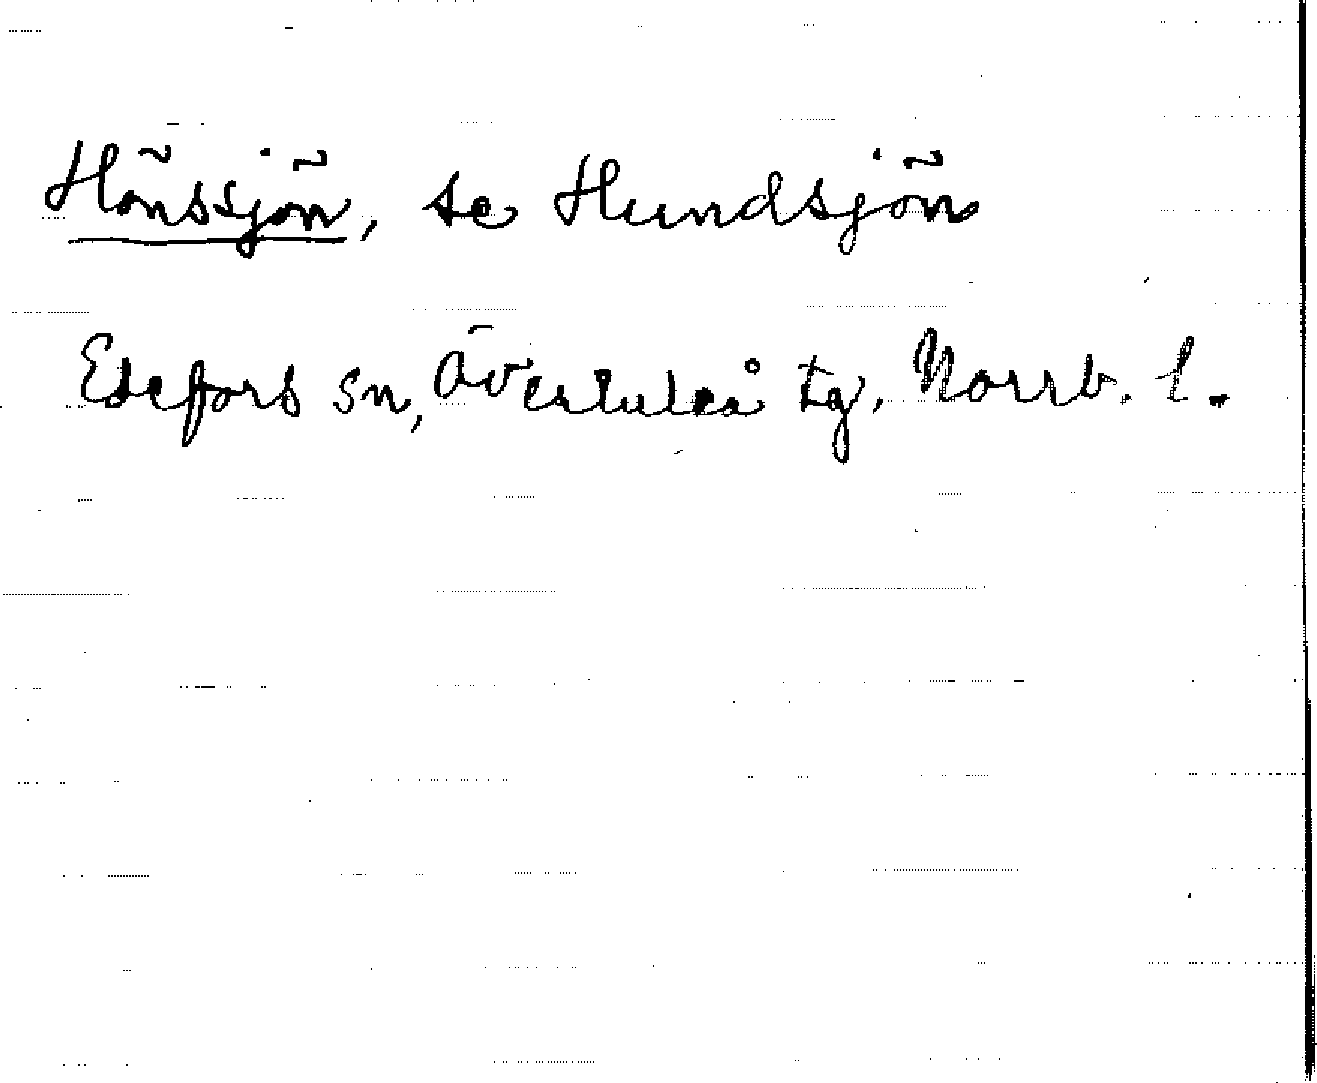 Hönssjön, se Hundsjön
Edefors sn, Överluleå tg, Norrb. l.